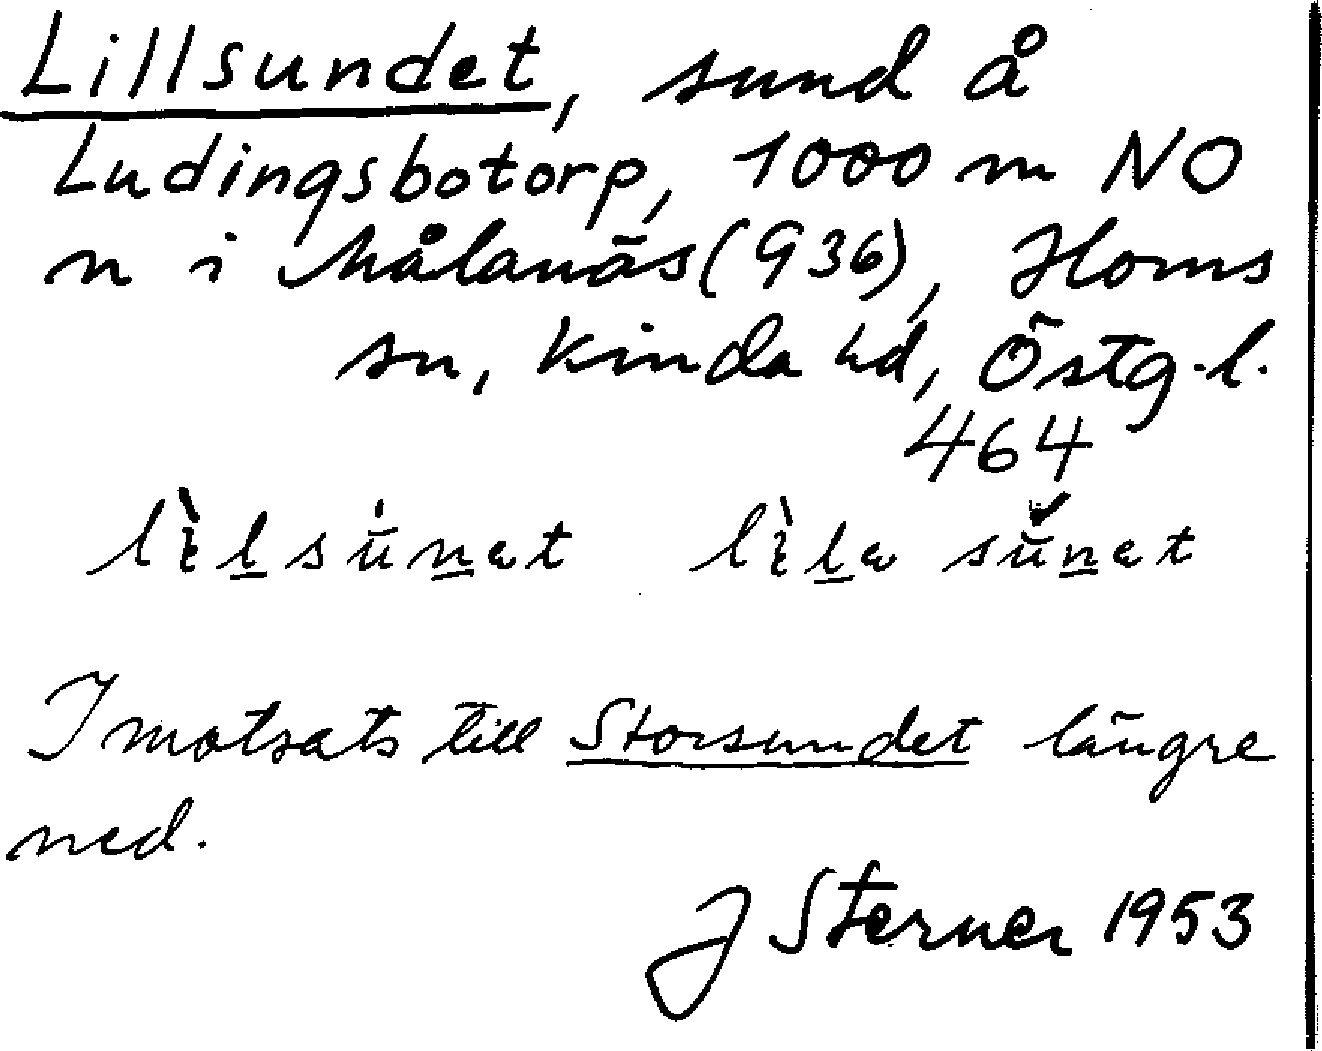 Lillsundet, sund å
Ludingsbotorp, 1000 m NO
n i Målanäs (936), Horns
sn, Kinda hd, Östg.l.
464
lìlsúnet lìle sŭnet
I motsats till Storsundet längre
ned.
J Sterner 1953